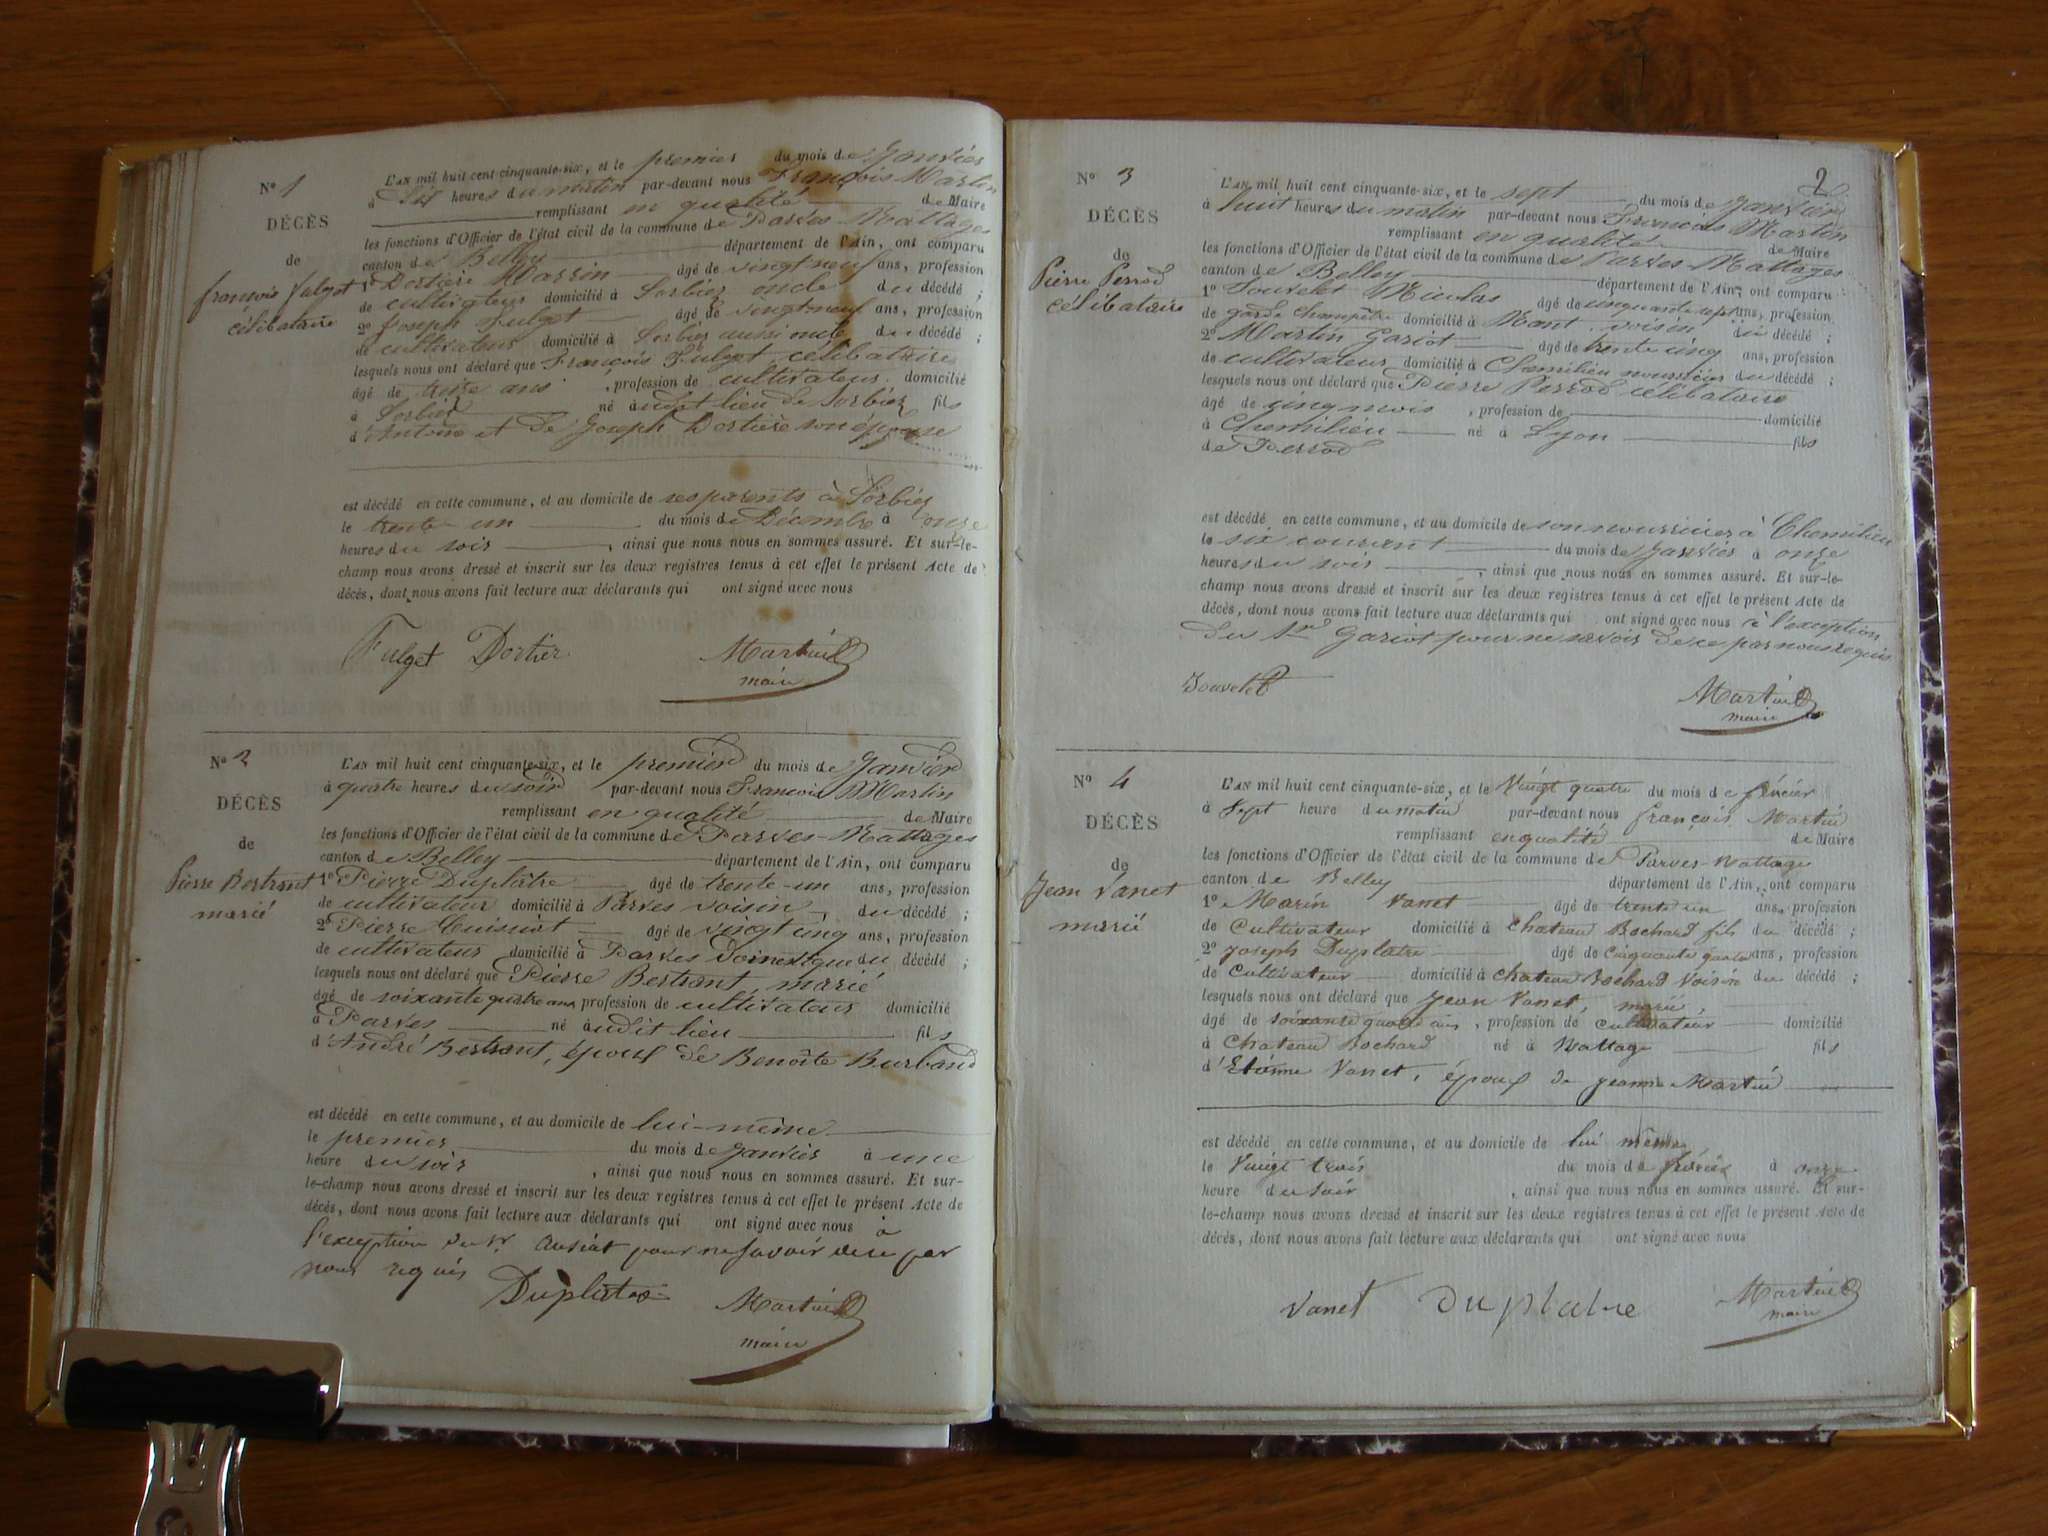 N° 1
DÉCÈS
de
françois fulget
célibataire
L'AN mil huit cent cinquante-six, et le premier du mois de Janvier
à dix heures du matin par-devant nous François Martin
remplissant en qualité de Maire
les fonctions d'Officier de l'état civil de la commune de Parves-Nattages
canton de Belley département de l'Ain, ont comparu
1° Dortière Marrin âgé de vingt neuf ans, profession
de cultivateur domicilié à Sorbier oncle du décédé ;
2° Joseph Fulget âgé de vingt-neuf ans, profession
de cultivateur domicilié à Sorbier aussi oncle du décédé ;
lesquels nous ont déclaré que François Fulget, célibataire
âgé de treize ans , profession de cultivateur domicilié
à Sorbier né à udit lieu de Sorbier fils
d'Antoine et de Joseph Dortière son épouse
est décédé en cette commune, et au domicile de ses parents à Sorbier
le trente un du mois de Décembre à onze
heures du soir , ainsi que nous nous en sommes assuré. Et sur-le-
champ nous avons dressé et inscrit sur les deux registres tenus à cet effet le présent Acte de
décès, dont nous avons fait lecture aux déclarants qui ont signé avec nous
Fulget Dortier Martin
maire
N° 2
DÉCÈS
de
Pierre Bertrant
marié
L'AN mil huit cent cinquante-six, et le premier du mois de Janvier
à quatre heures du soir par-devant nous Francois Martin
remplissant en qualité de Maire
les fonctions d'Officier de l'état civil de la commune de Parves-Nattages
canton de Belley département de l'Ain, ont comparu
1° Pierre Duplâtre âgé de trente-un ans, profession
de cultivateur domicilié à Parves voisin du décédé ;
2° Pierre âgé de vingt cinq ans, profession
de cultivateur domicilié à Parves du décédé ;
lesquels nous ont déclaré que Pierre Bertrant, marié
âgé de soixante quatre ans profession de cultivateur domicilié
à Parves né à udit lieu fils
d'André Bertrant, époux de Benoîte Burband
est décédé en cette commune, et au domicile de lui-même
le premier du mois de Janvier à une
heure du soir , ainsi que nous nous en sommes assuré. Et sur-
le-champ nous avons dressé et inscrit sur les deux registres tenus à cet effet le présent Acte de
décès, dont nous avons fait lecture aux déclarants qui ont signé avec nous à
l'exception du Sr. pour ne savoir de ce par
nous requis Duplatre Martin
maire
2
N° 3
DÉCÈS
de
Pierre Perrod
célibataire
L'AN mil huit cent cinquante-six, et le sept du mois de Janvier
à huit heures du matin par-devant nous François Martin
remplissant en qualité de Maire
les fonctions d'Officier de l'état civil de la commune de Parves-Nattages
canton de Belley département de l'Ain, ont comparu
1° Jouvelet Nicolas âgé de cinquante sept ans, profession
de garde champêtre domicilié à Mont voisin du décédé ;
2° Martin Gariot âgé de trente cinq ans, profession
de cultivateur domicilié à Chemilieu nourricier du décédé ;
lesquels nous ont déclaré que Pierre Perrod célibataire
âgé de cinq mois , profession de domicilié
à Chemilieu né à Lyon fils
de Perrod
est décédé en cette commune, et au domicile de son nourricier à Chemilieu
le six courant du mois de Janvier à onze
heures du soir , ainsi que nous nous en sommes assuré. Et sur-le-
champ nous avons dressé et inscrit sur les deux registres tenus à cet effet le présent Acte de
décès, dont nous avons fait lecture aux déclarants qui ont signé avec nous à l'exception
du Sr Gariot pour ne savoir de ce par nous requis
Jouvelet Martin
maire
N° 4
DÉCÈS
de
Jean Vanet
marié
L'AN mil huit cent cinquante-six, et le Vingt quatre du mois de février
à Sept heure du matin par-devant nous françois Martin
remplissant en qualité de Maire
les fonctions d'Officier de l'état civil de la commune de Parves-Nattage
canton de Belley département de l'Ain, ont comparu
1° Marin Vanet âgé de trente un ans, profession
de Cultivateur domicilié à Chateau Bochard fils du décédé ;
2° Joseph Duplatre âgé de Cinquante quatre ans, profession
de Cultivateur domicilié à Chateau Bochard Voisin du décédé ;
lesquels nous ont déclaré que Jean Vanet, marié,
âgé de soixante quatre ans , profession de cultivateur domicilié
à Chateau Bochard né à Nattage fils
d'Etienne Vanet, époux de jeanne Martin
est décédé en cette commune, et au domicile de lui même
le Vingt trois du mois de février à onze
heure du soir , ainsi que nous nous en sommes assuré. Et sur-
le-champ nous avons dressé et inscrit sur les deux registres tenus à cet effet le présent Acte de
décès, dont nous avons fait lecture aux déclarants qui ont signé avec nous
Vanet Duplatre Martin
maire